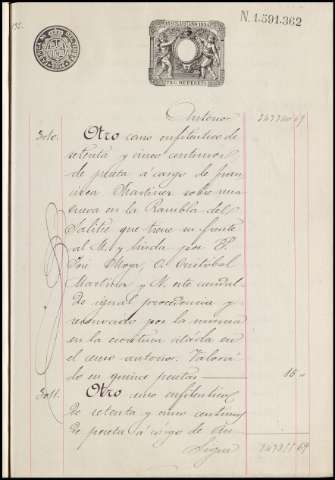 N. 1.591.362
Anterior
Otro censo enfitéutico de
setenta y cinco centimos
de peseta á cargo de Juan
Martinez sobre una
cueva en la Rambla del
Salitre que tiene su frente
al M. y linda por P.
José Moya, C. Cristóbal
Martinez y N. este caudal
de igual procedencia y
reservado por la misma
en la escritura citada en
el censo anterior. Valora
do en quince pesetas 15
Otro censo enfitéutico
de setenta y cinco centimos
de peseta á cargo de
Sigue